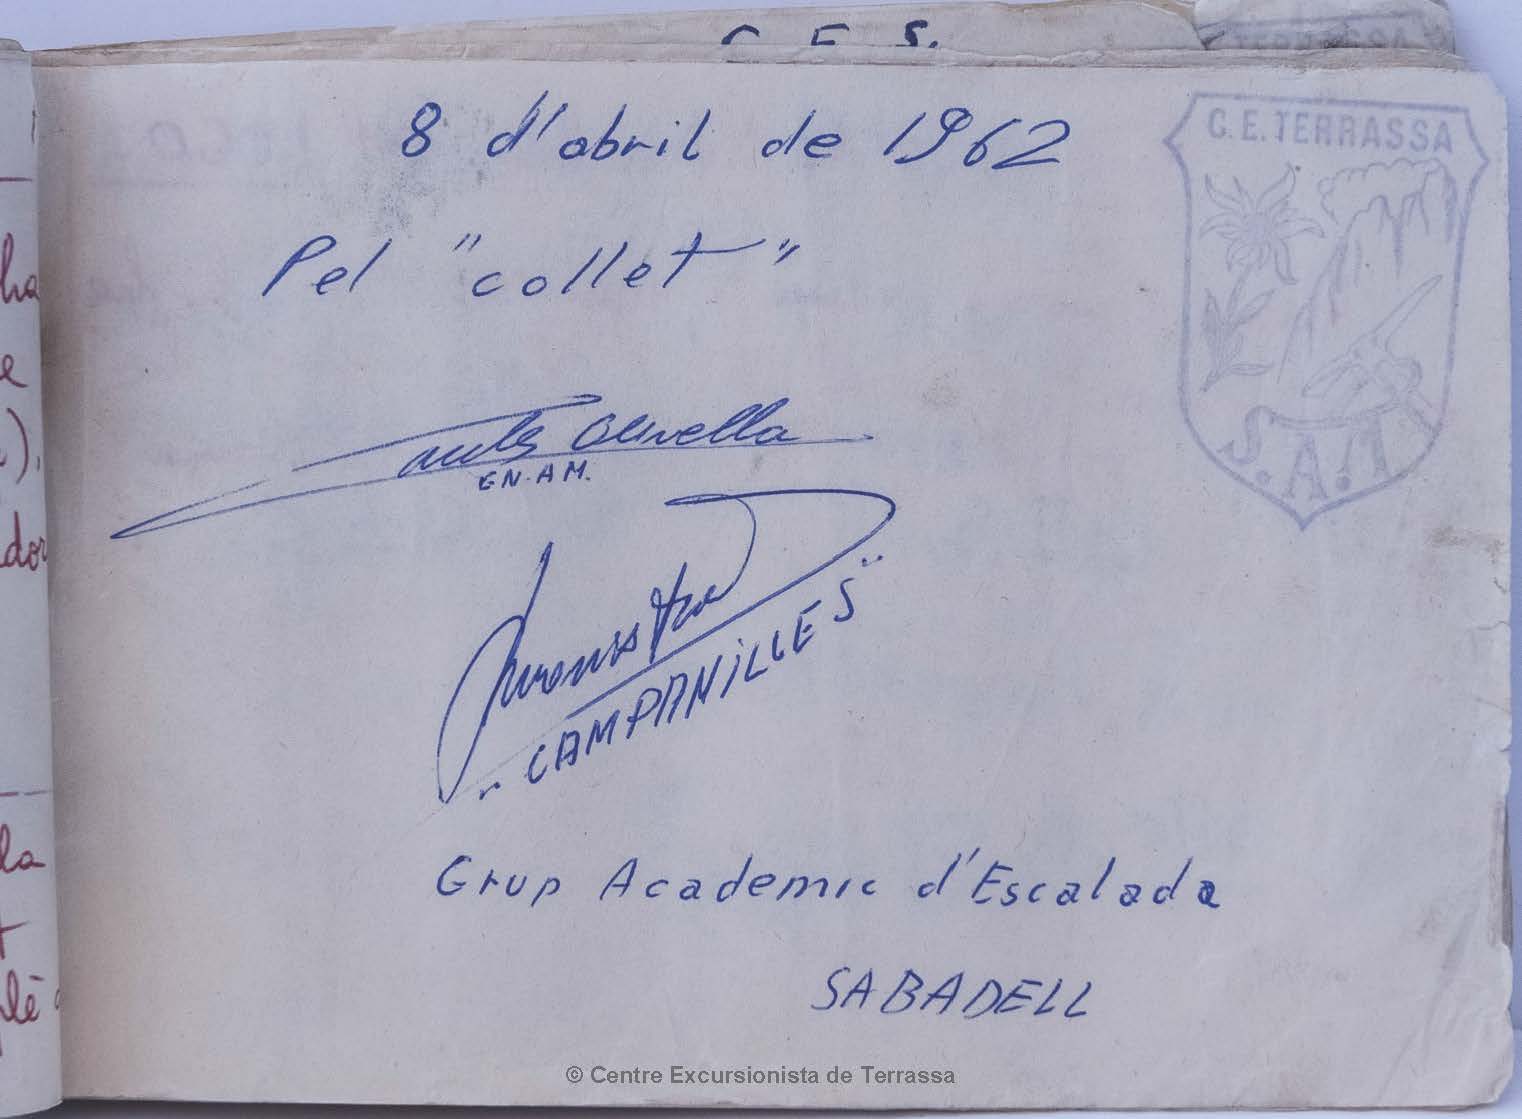 C. E. S.
8 d'abril de 1962
C. E. TERRASSA
Pel "collet"
Olivella
EN. A M.
S. A. T
"CAMPANILLES"
Grup Academic d'Escalada
SABADELL
ha
e
),
dor
la
© Centre Excursionista de Terrassa